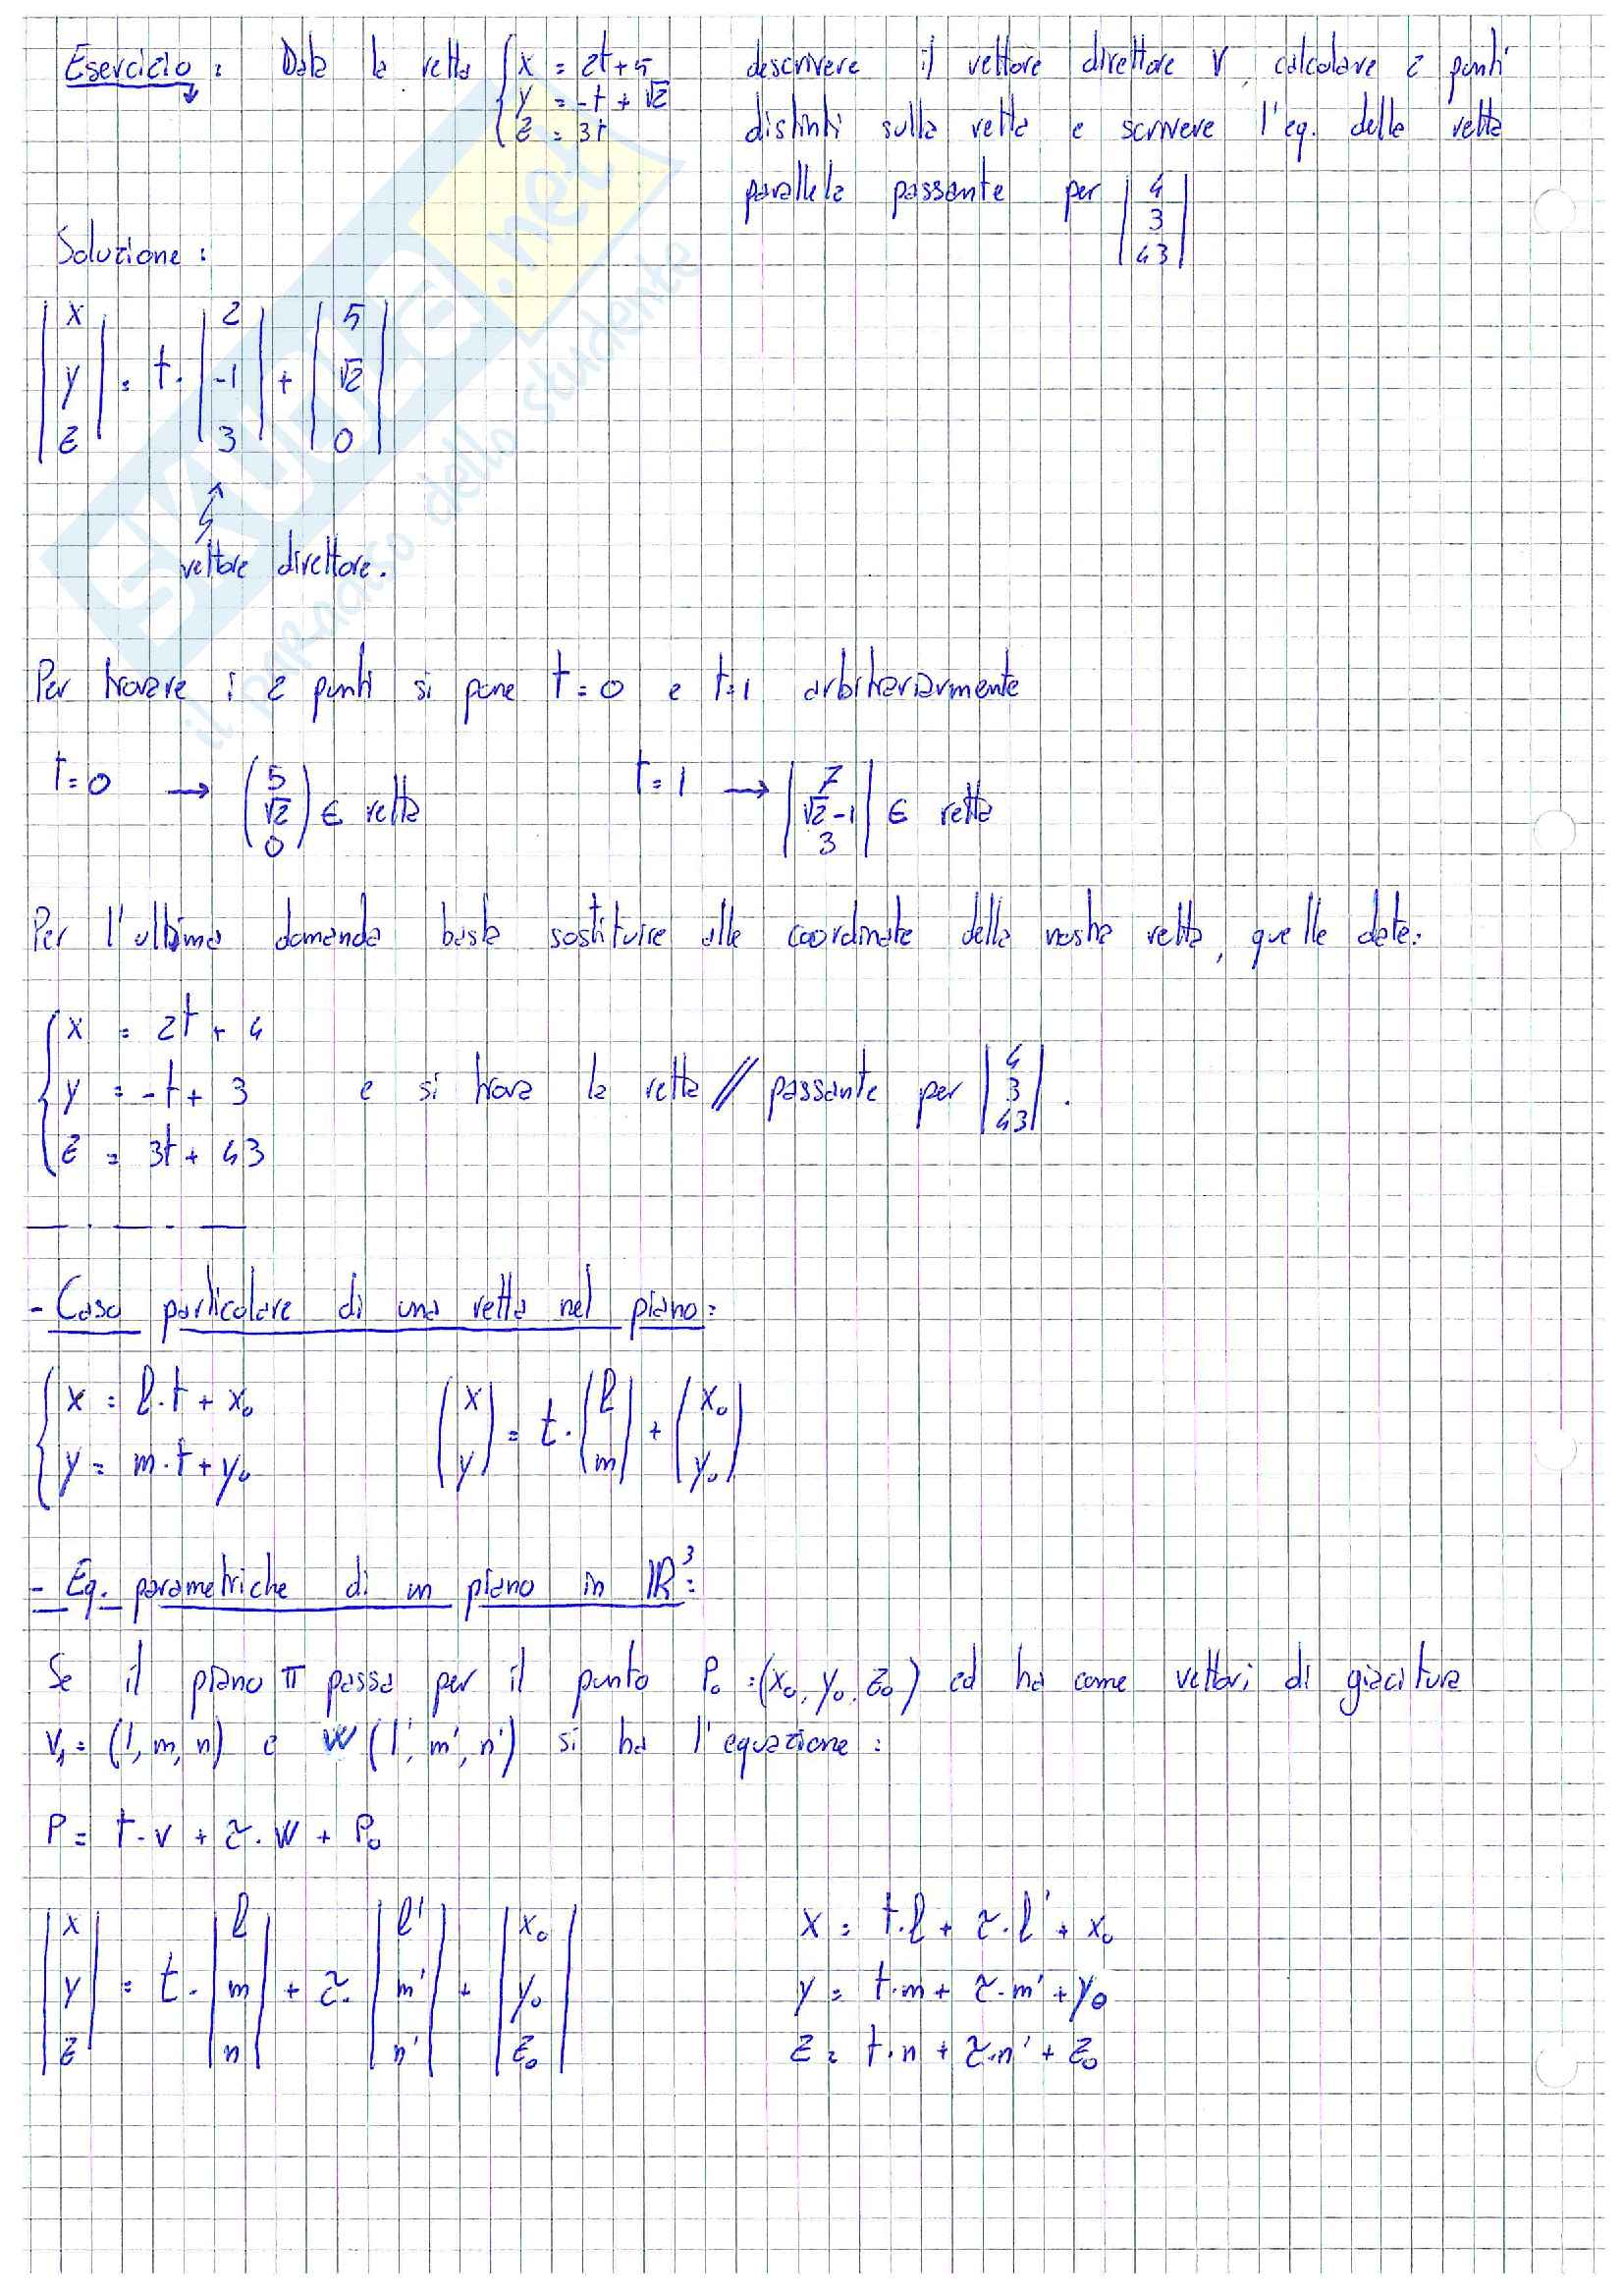 Esercizio: Data la retta { x = 2t+5 descrivere il vettore direttore v, calcolare 2 punti
y = -t + √2
z = 3t distinti sulla retta e scrivere l'eq. della retta
parallela passante per | 4 |
| 3 |
| 43 |
Soluzione:
| x | | 2 | | 5 |
| y | = t · | -1 | + | √2 |
| z | | 3 | | 0 |
vettore direttore.
Per trovare i 2 punti si pone t=0 e t=1 arbitrariarmente
t=0 → ( 5 ) t=1 → | 7 |
( √2 ) ∈ retta | √2-1 | ∈ retta
( 0 ) | 3 |
Per l'ultima domanda basta sostituire alle coordinate della nostra retta, quelle date:
{ x = 2t + 4
y = -t + 3 e si trova la retta // passante per | 4 |
| 3 |
| 43 | .
z = 3t + 43
- Caso particolare di una retta nel piano:
{ x = l·t + x₀ ( x ) = t · ( l ) + ( x₀ )
y = m·t + y₀ ( y ) ( m ) ( y₀ )
- Eq. parametriche di un piano in ℝ³:
Se il piano π passa per il punto P₀ = (x₀, y₀, z₀) ed ha come vettori di giacitura
V₁ = (l, m, n) e W (l', m', n') si ha l'equazione:
P = t·v + τ·w + P₀
| x | | l | | l' | | x₀ | x = t·l + τ·l' + x₀
| y | = t · | m | + τ · | m' | + | y₀ | y = t·m + τ·m' + y₀
| z | | n | | n' | | z₀ | z = t·n + τ·n' + z₀
SKUOLA.net
il paradiso dello studente